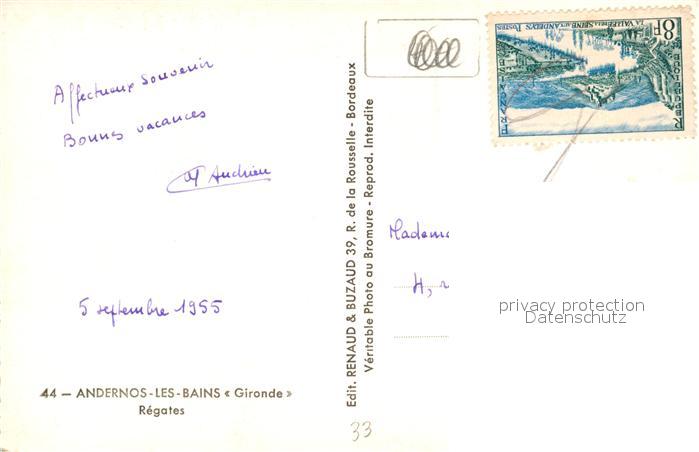 Affectueux souvenir
Bonnes vacances
Andrieu
5 septembre 1955
44 — ANDERNOS-LES-BAINS « Gironde »
Régates
Edit. RENAUD & BUZAUD 39, R. de la Rousselle - Bordeaux
Véritable Photo au Bromure - Reprod. Interdite
33
8F
LA VALLÉE DE LA SEINE AUX ANDELYS POSTES
Madame
4,
privacy protection
Datenschutz